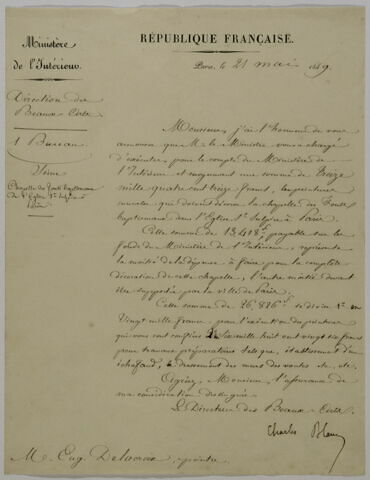 Ministère
de l'Intérieur.
Direction des
Beaux-Arts
1 Bureau
Seine
Chapelle des fonts baptismaux
de l'Eglise St Sulpice à
Paris
RÉPUBLIQUE FRANÇAISE.
Paris, le 21 mai 1849.
Monsieur, j'ai l'honneur de vous
annoncer que M. le Ministre vous a chargé
d'exécuter, pour le compte du Ministère de
l'Intérieur et moyennant une somme de treize
mille quatre cent treize francs, les peintures
murales qui doivent décorer la chapelle des fonts
baptismaux dans l'Eglise St Sulpice à Paris.
Cette somme de 13 413 f, payable sur les
fonds du Ministère de l'Intérieur, représente
la moitié de la dépense à faire pour la complète
décoration de cette chapelle, l'autre moitié devant
être supportée par la ville de Paris.
Cette somme de 26,826 f se divise en
Vingt mille francs pour l'exécution des peintures
qui vous sont confiées & Six mille huit cent vingt six francs
pour travaux préparatoires tels que, établissement d'un
échafaud, dressement des murs des voutes etc. etc.
Agréez, Monsieur, l'assurance de
ma considération distinguée.
Le Directeur des Beaux-Arts
Charles Blanc
M. Eug. Delacroix, peintre